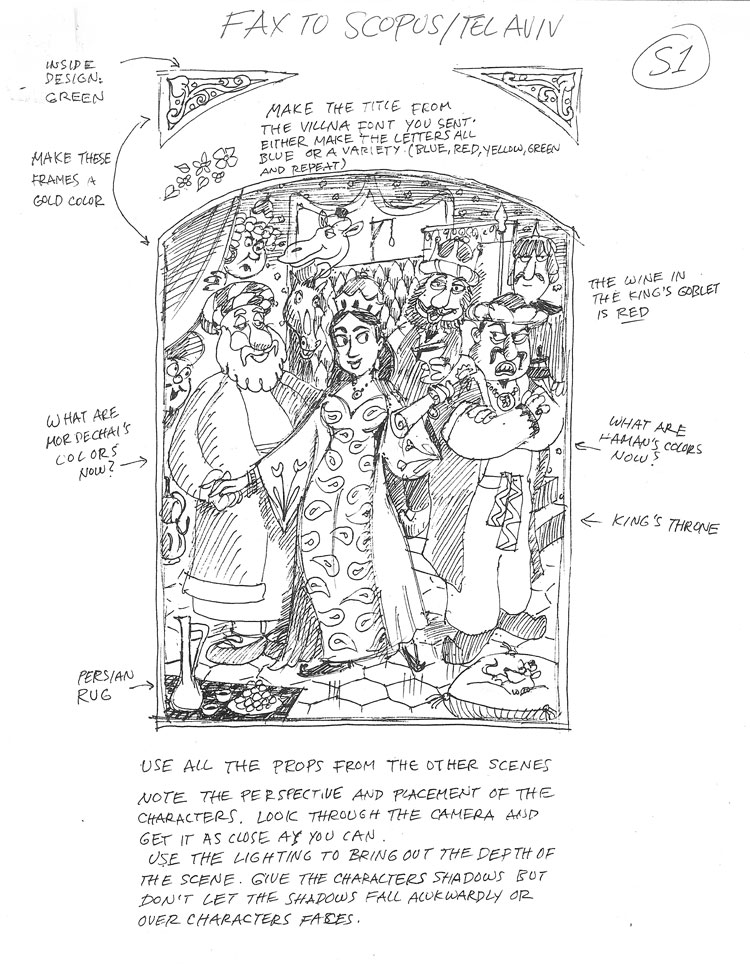 FAX TO SCOPUS/TEL AVIV
S1
INSIDE
DESIGN:
GREEN
MAKE THE TITLE FROM
THE VILLNA FONT YOU SENT.
EITHER MAKE THE LETTERS ALL
BLUE OR A VARIETY (BLUE, RED, YELLOW, GREEN
AND REPEAT)
MAKE THESE
FRAMES A
GOLD COLOR
THE WINE IN
THE KING'S GOBLET
IS RED
WHAT ARE
MORDECHAI'S
COLORS
NOW?
WHAT ARE
HAMAN'S COLORS
NOW?
KING'S THRONE
PERSIAN
RUG
USE ALL THE PROPS FROM THE OTHER SCENES
NOTE THE PERSPECTIVE AND PLACEMENT OF THE
CHARACTERS. LOOK THROUGH THE CAMERA AND
GET IT AS CLOSE AS YOU CAN.
USE THE LIGHTING TO BRING OUT THE DEPTH OF
THE SCENE. GIVE THE CHARACTERS SHADOWS BUT
DON'T LET THE SHADOWS FALL AWKWARDLY OR
OVER CHARACTERS FACES.